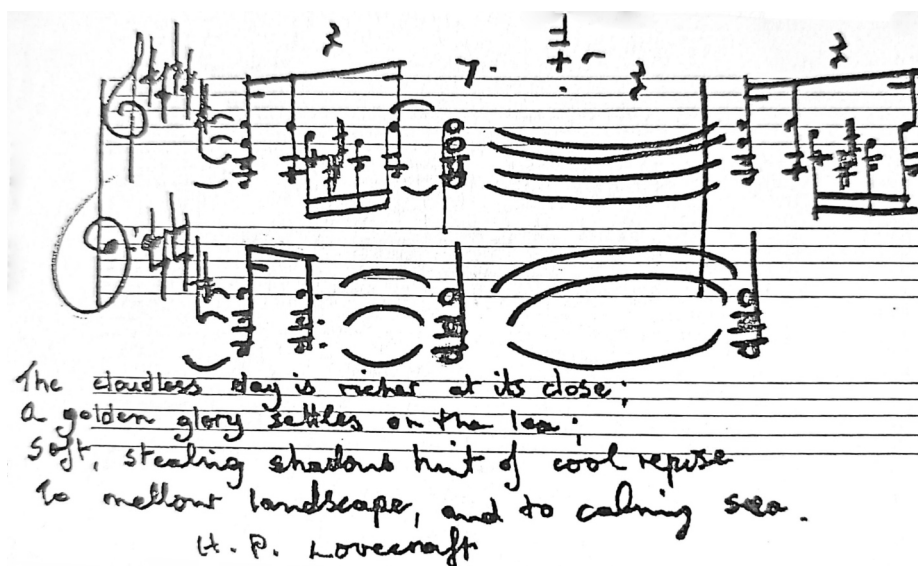 The cloudless day is richer at its close;
A golden glory settles on the lea;
Soft, stealing shadows hint of cool repose
To mellow landscape, and to calming sea.
H. P. Lovecraft